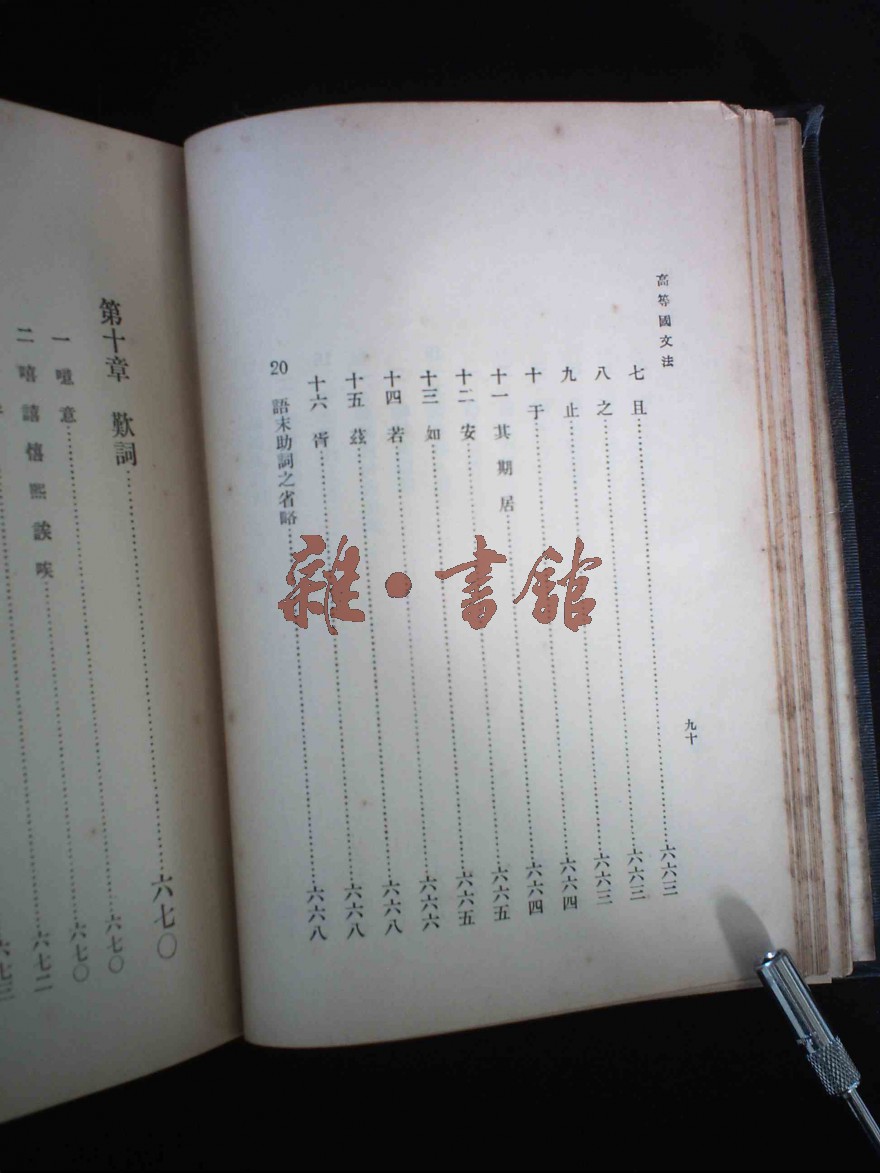 高等國文法
九十
七 且……六六三
八 之……六六三
九 止……六六三
十 于……六六四
十一 其 期 居……六六四
十二 安……六六五
十三 如……六六五
十四 若……六六六
十五 茲……六六八
十六 胥……六六八
20 語末助詞之省略……六六八
第十章 歎詞……六七〇
一 噫 意……六七〇
二 嘻 譆 僖 熙 誒 唉……六七〇
六七二
雜·書館